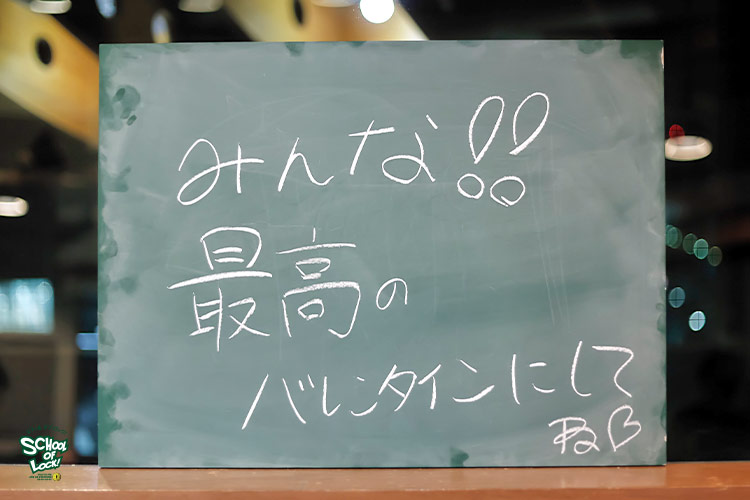 みんな!!
最高の
バレンタインにして
ね♡
SCHOOL
OF
LOCK!